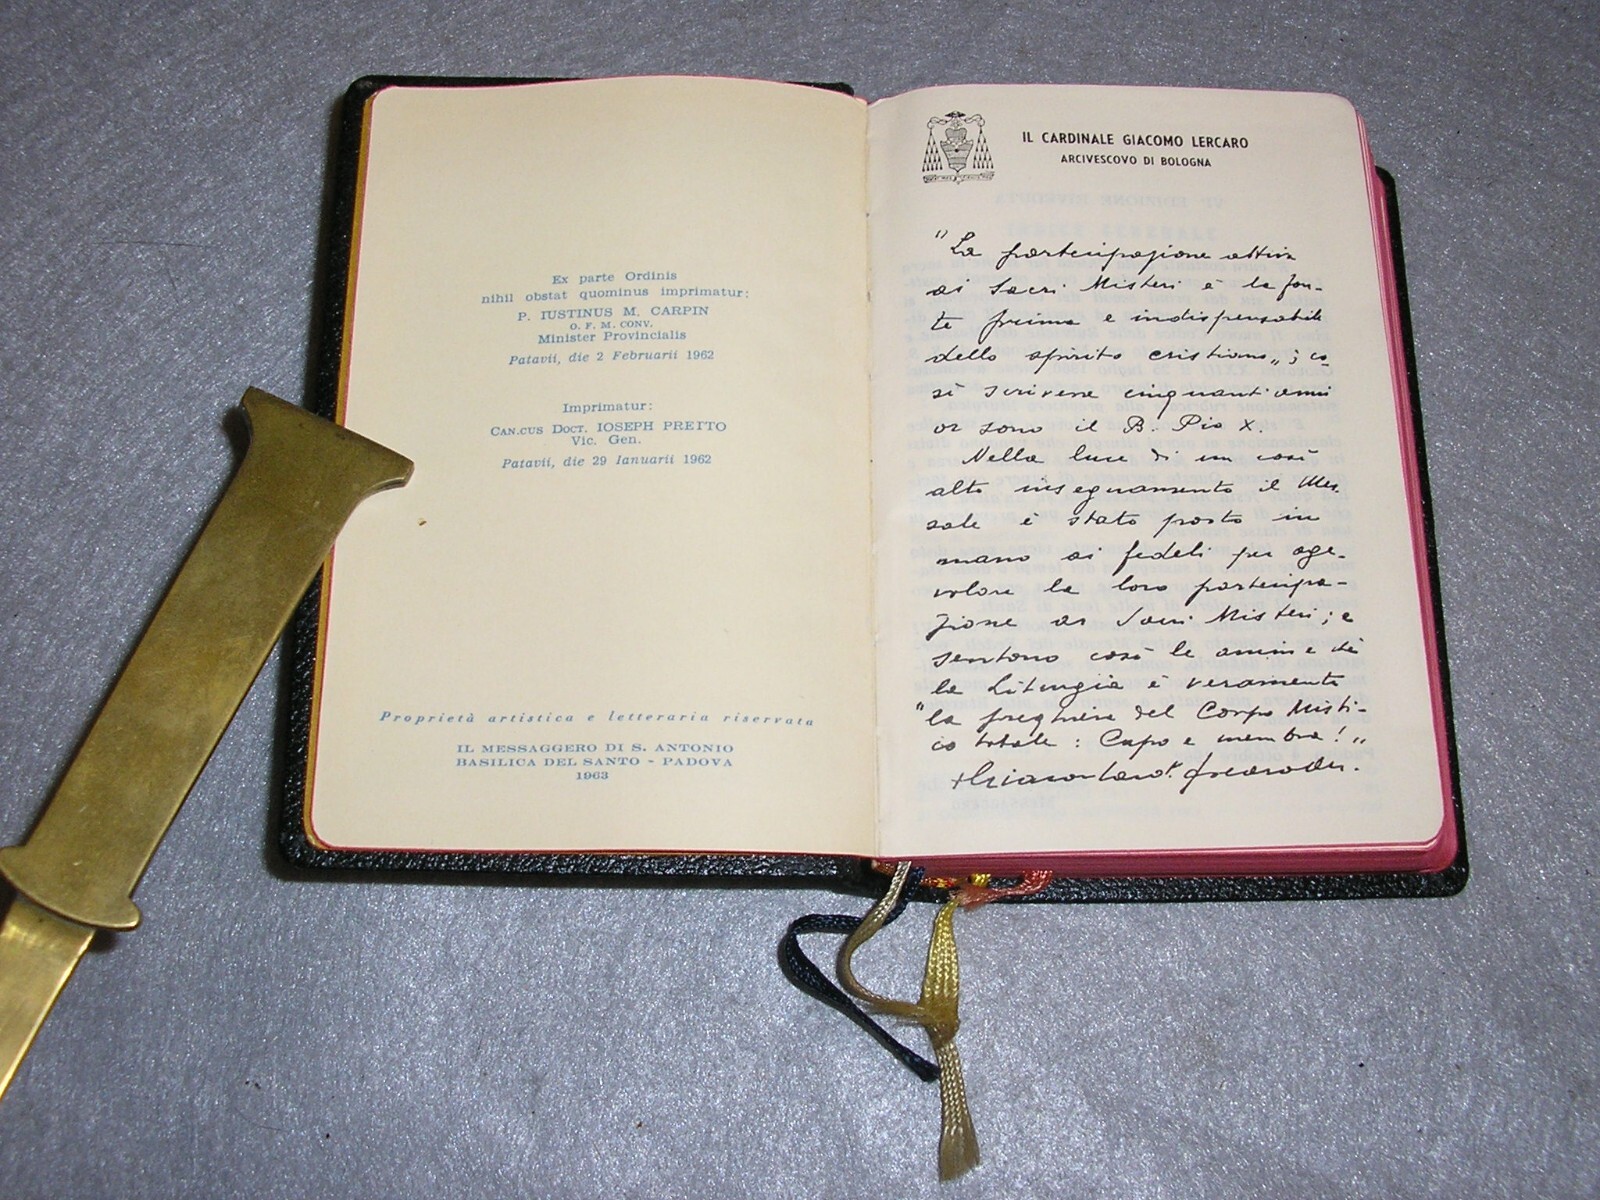 Ex parte Ordinis
nihil obstat quominus imprimatur:
P. IUSTINUS M. CARPIN
O. F. M. CONV.
Minister Provincialis
Patavii, die 2 Februarii 1962
Imprimatur:
CAN.CUS DOCT. IOSEPH PRETTO
Vic. Gen.
Patavii, die 29 Ianuarii 1962
Proprietà artistica e letteraria riservata
IL MESSAGGERO DI S. ANTONIO
BASILICA DEL SANTO - PADOVA
1963
IL CARDINALE GIACOMO LERCARO
ARCIVESCOVO DI BOLOGNA
"La partecipazione attiva
ai Sacri Misteri è la fon-
te prima e indispensabile
dello spirito cristiano"; co
sì scriveva cinquant'anni
or sono il B. Pio X.
Nella luce di un così
alto insegnamento il Mes-
sale è stato posto in
mano ai fedeli per age-
volare la loro partecipa-
zione ai Sacri Misteri; e
sentono così le anime che
la Liturgia è veramente
"la preghiera del Corpo Misti-
co totale: Capo e membra!"